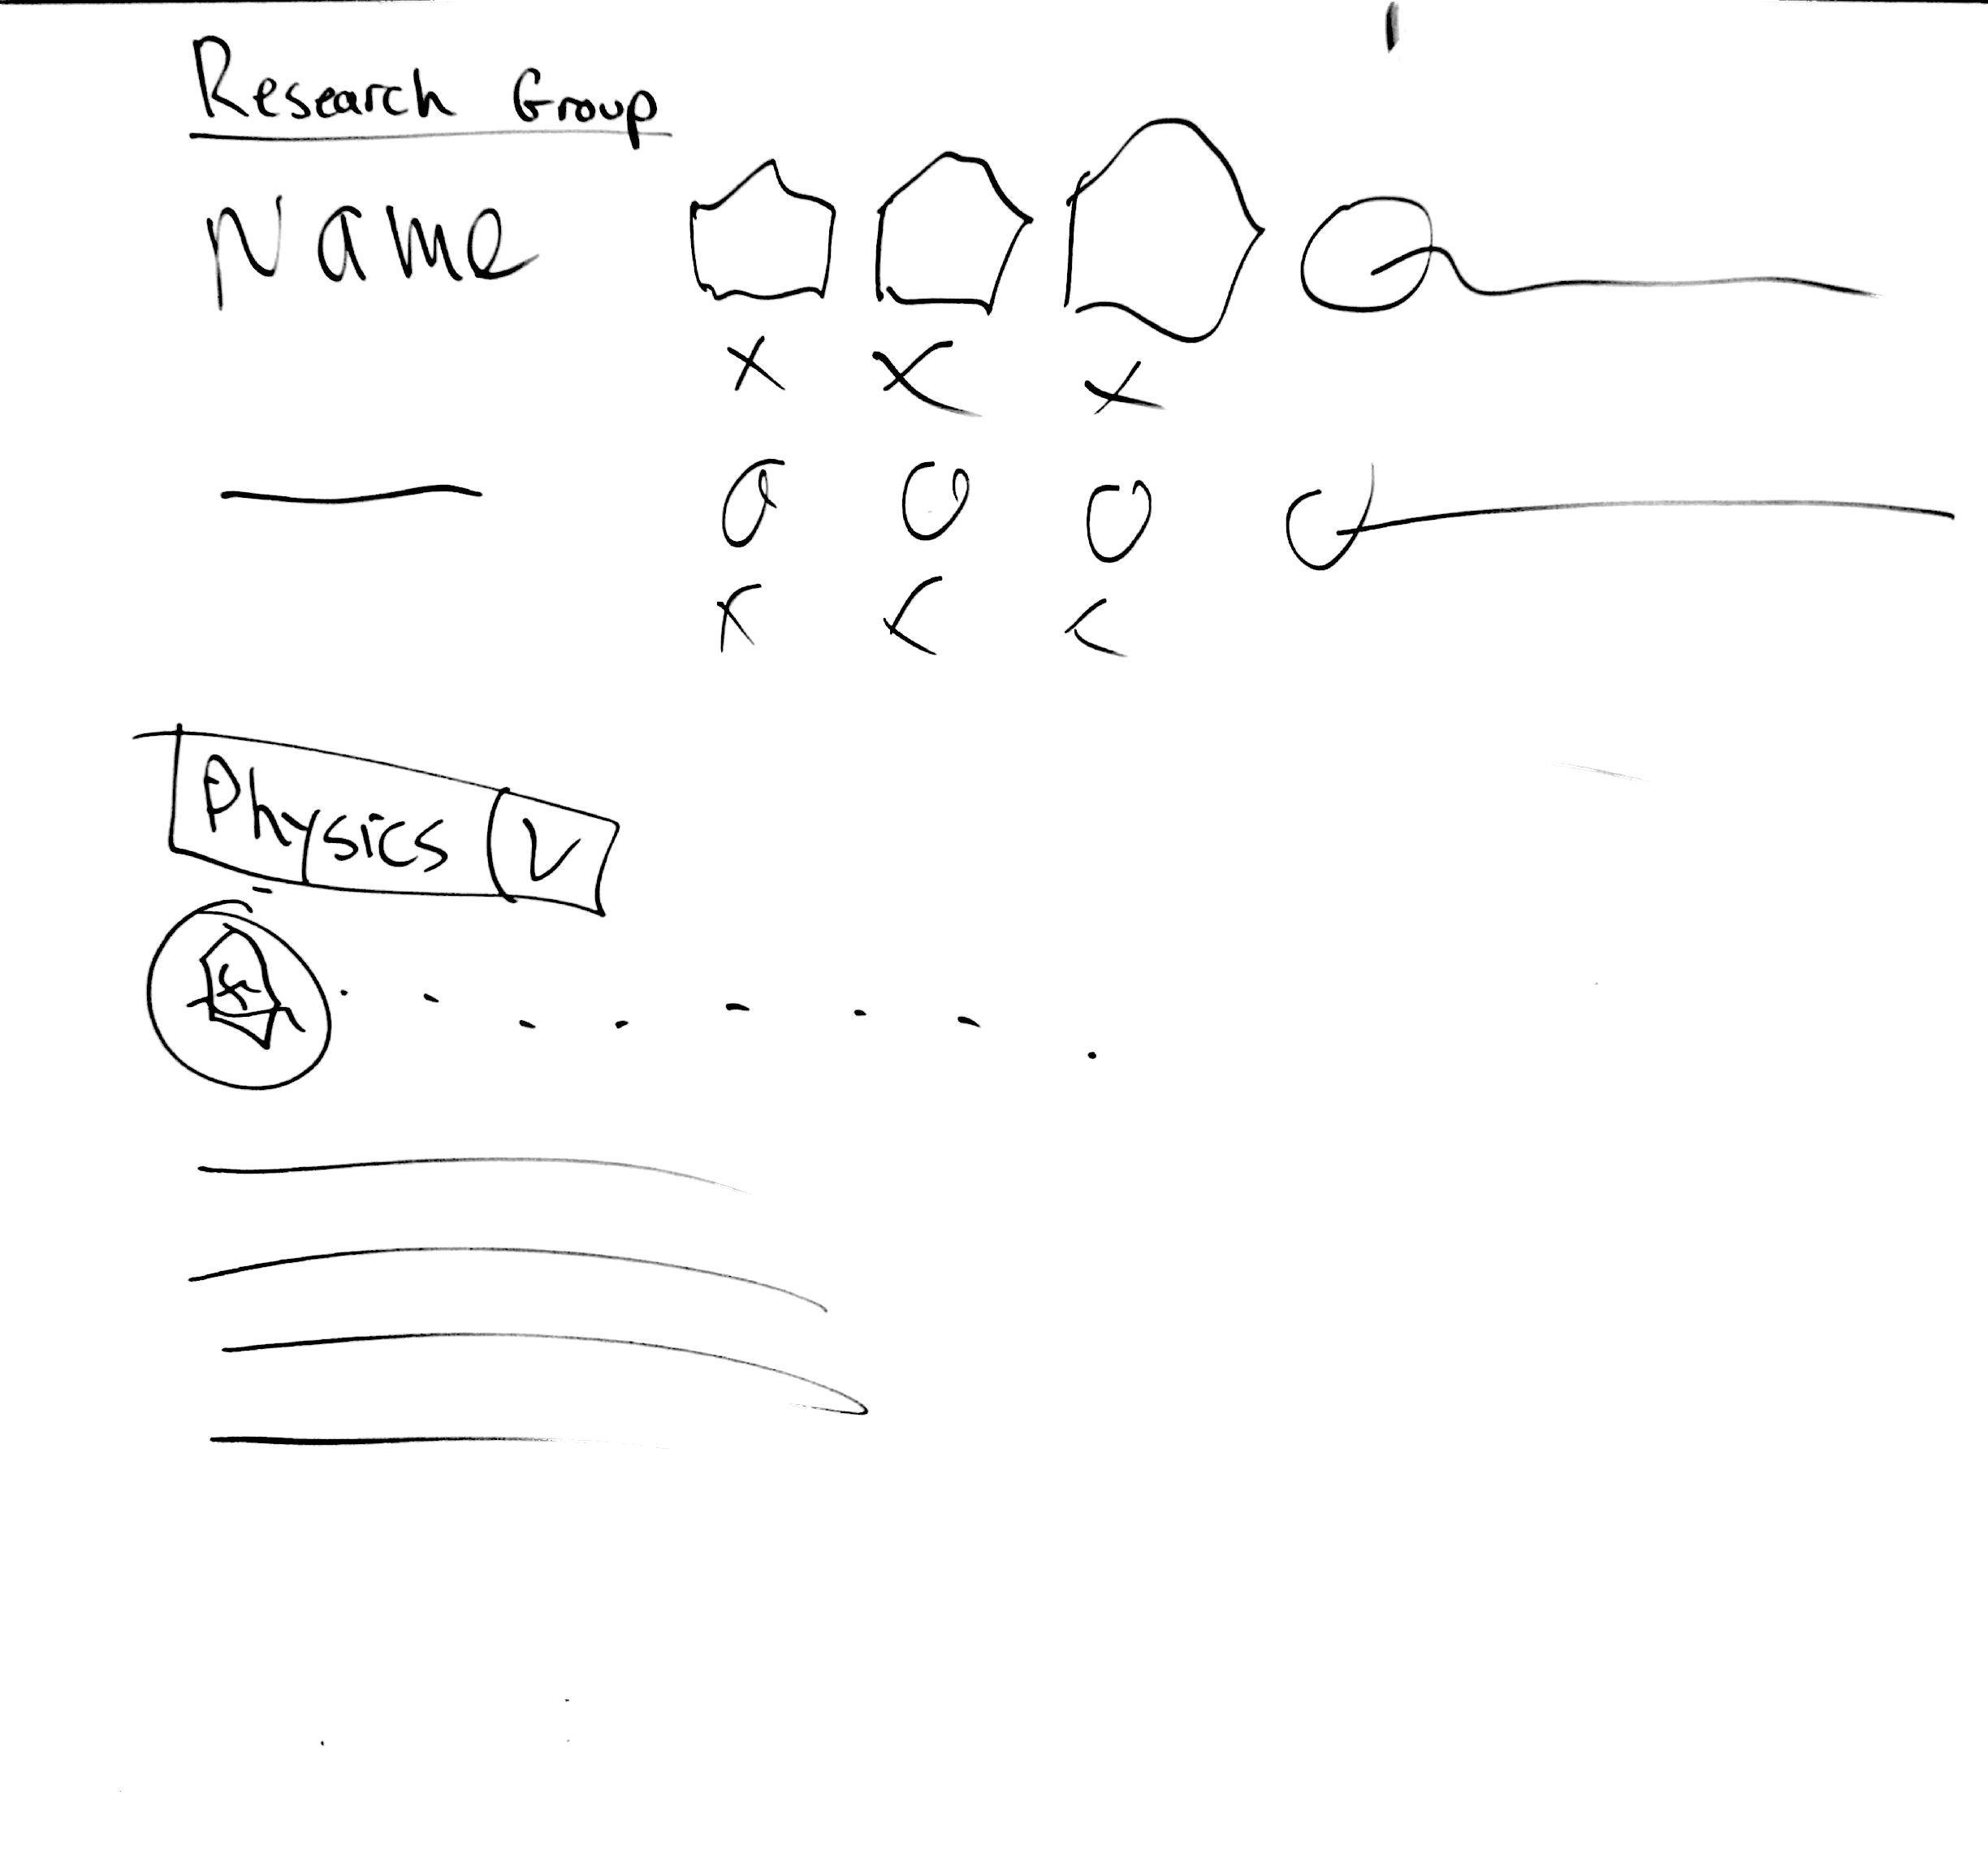 Research Group
Name
Physics